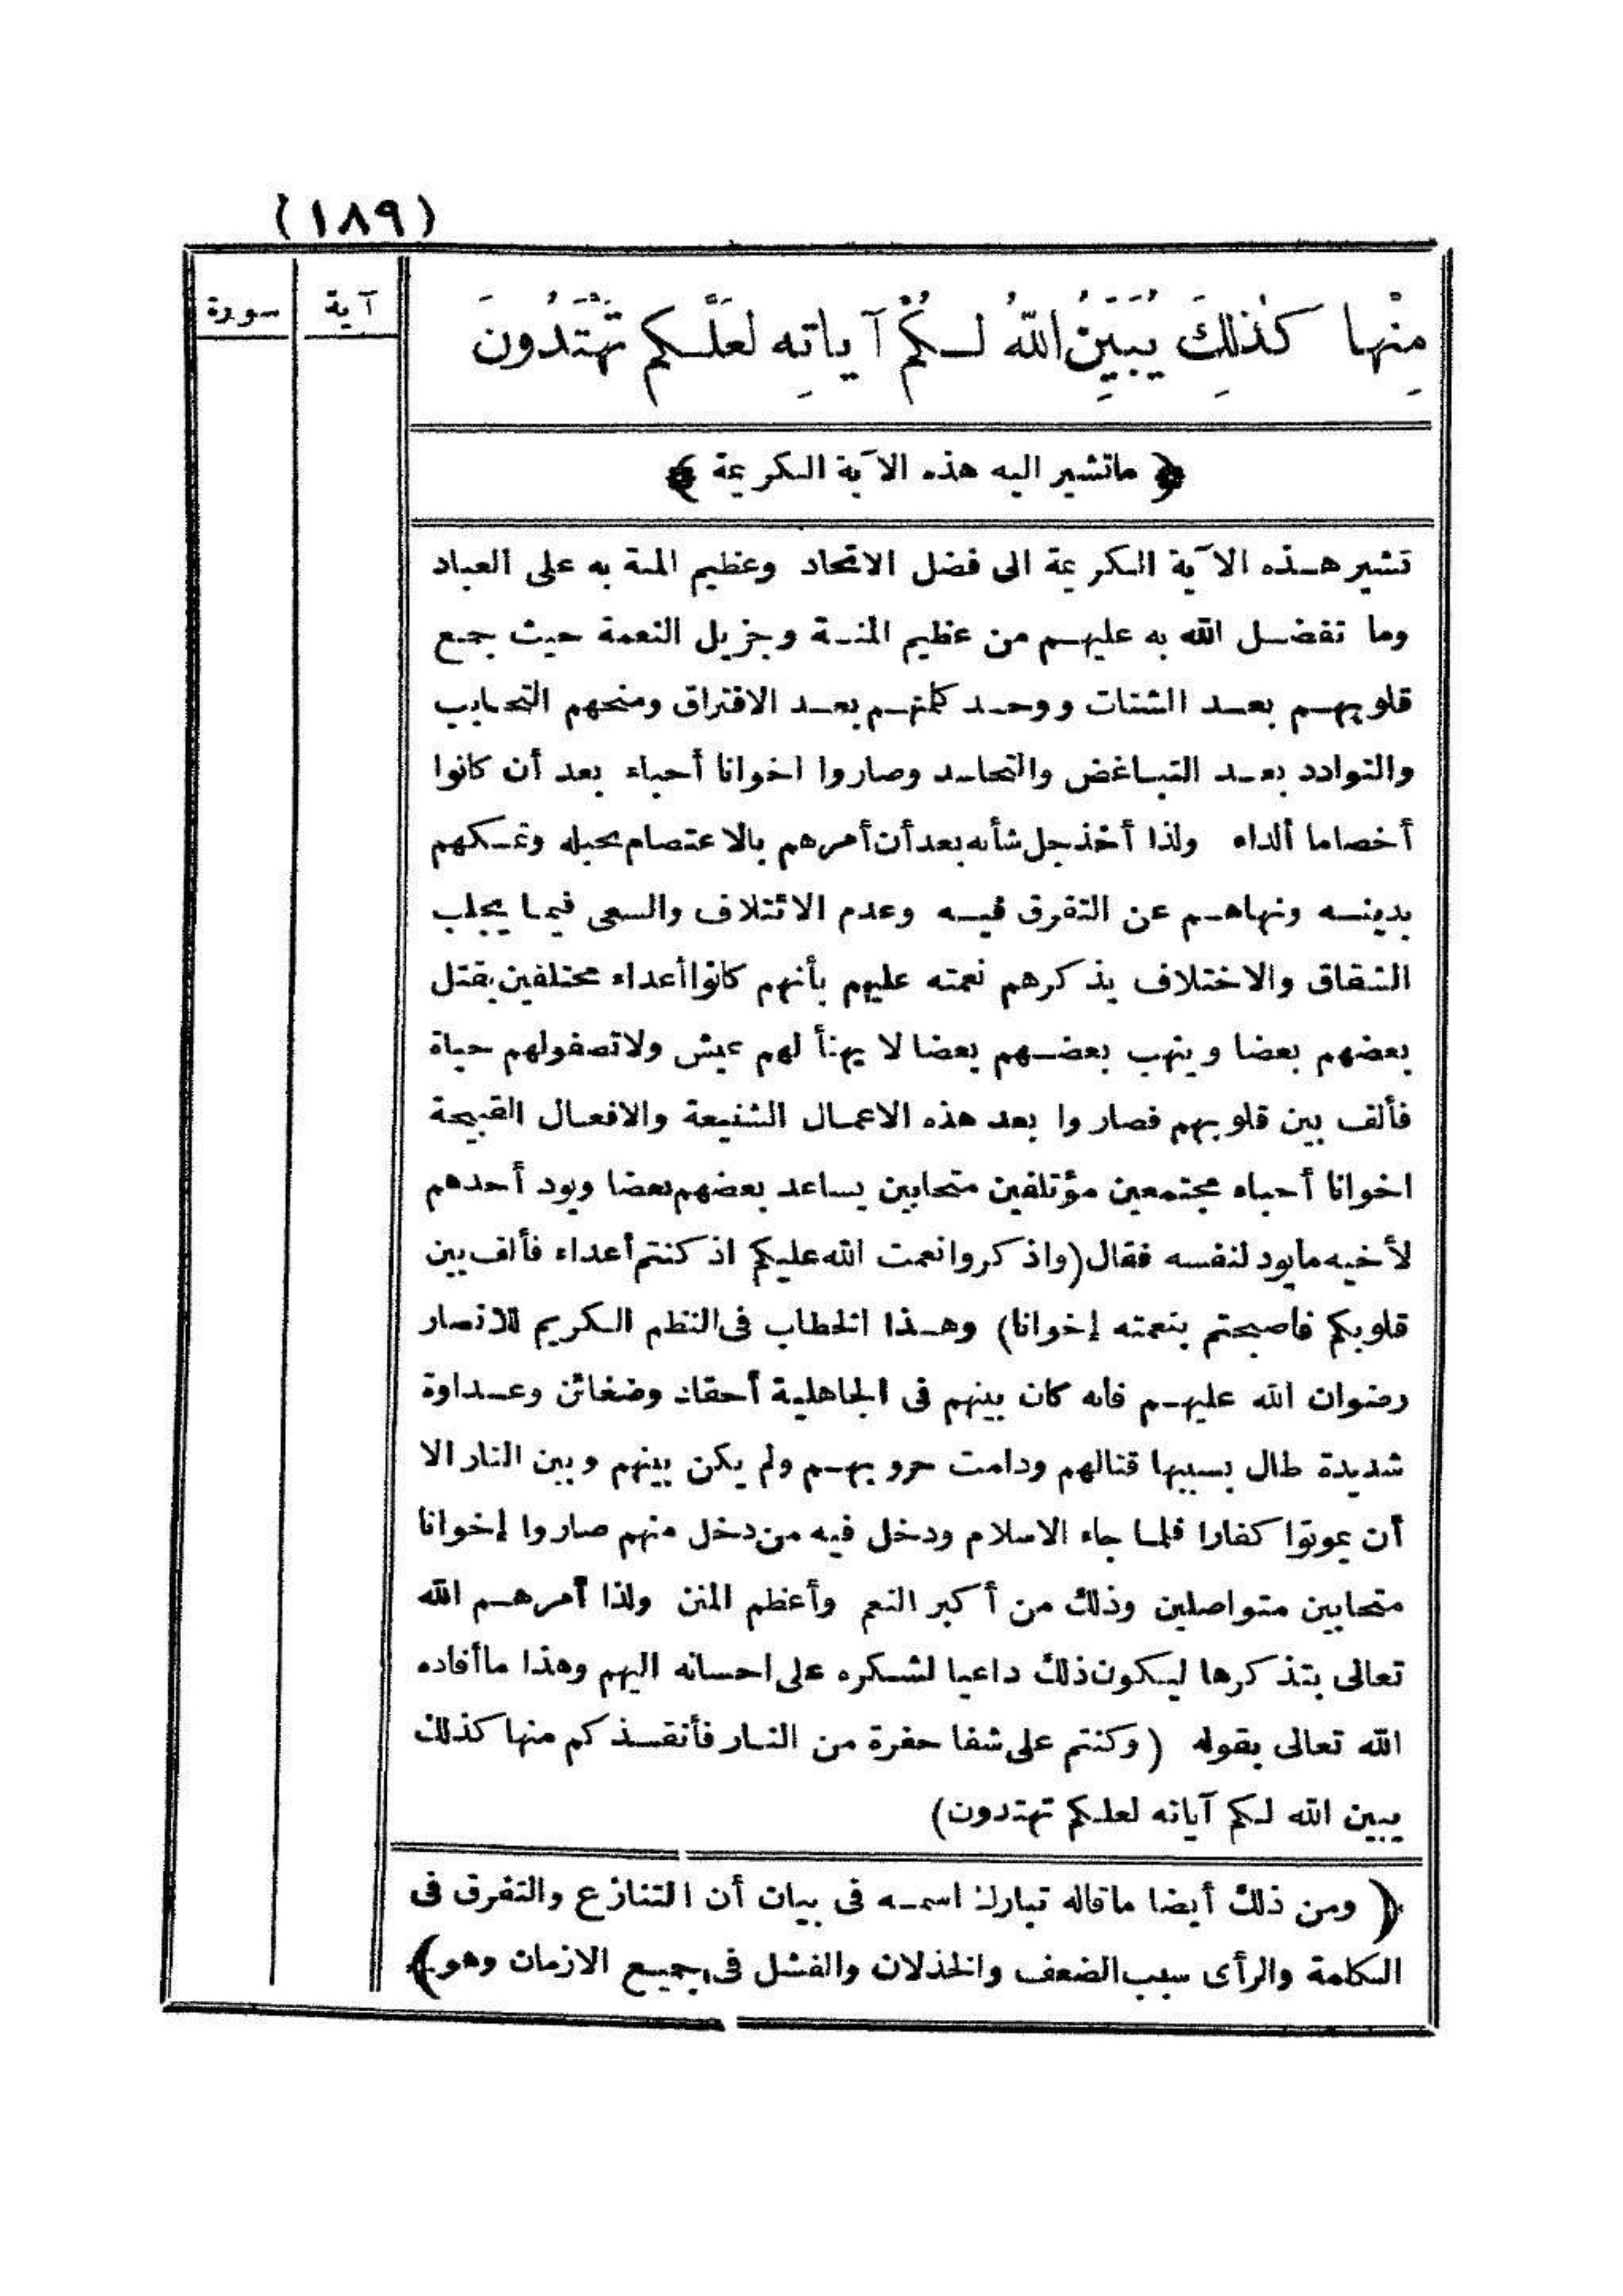 (١٨٩)
آية
سورة
مِنْها كَذٰلِكَ يُبَيِّنُ اللهُ لَكُمْ آياتِهِ لعَلَّكم تَهْتَدُونَ
﴿ ماتشير اليه هذه الآية الكريمة ﴾
تشير هذه الآية الكريمة الى فضل الاتحاد وعظيم المنة به على العباد
وما تفضل الله به عليهم من عظيم المنة وجزيل النعمة حيث جمع
قلوبهم بعد الشتات ووحد كلمتهم بعد الافتراق ومنحهم التحابب
والتوادد بعد التباغض والتحاسد وصاروا اخوانا أحباء بعد أن كانوا
أخصاما ألداء ولذا أخذ جل شأنه بعد أن أمرهم بالاعتصام بحبله وتمسكهم
بدينه ونهاهم عن التفرق فيه وعدم الائتلاف والسعى فيما يجلب
الشقاق والاختلاف يذكرهم نعمته عليهم بأنهم كانوا أعداء مختلفين يقتل
بعضهم بعضا وينهب بعضهم بعضا لا يهنأ لهم عيش ولا تصفو لهم حياة
فألف بين قلوبهم فصاروا بعد هذه الاعمال الشنيعة والافعال القبيحة
اخوانا أحباء مجتمعين مؤتلفين متحابين يساعد بعضهم بعضا ويود أحدهم
لأخيه مايود لنفسه فقال (واذكروا نعمت الله عليكم اذ كنتم أعداء فألف بين
قلوبكم فاصبحتم بنعمته إخوانا) وهذا الخطاب فى النظم الكريم للانصار
رضوان الله عليهم فانه كان بينهم فى الجاهلية أحقاد وضغائن وعداوة
شديدة طال بسببها قتالهم ودامت حروبهم ولم يكن بينهم وبين النار الا
أن يموتوا كفارا فلما جاء الاسلام ودخل فيه من دخل منهم صاروا إخوانا
متحابين متواصلين وذلك من أكبر النعم وأعظم المنن ولذا أمرهم الله
تعالى بتذكرها ليكون ذلك داعيا لشكره على احسانه اليهم وهذا ما أفاده
الله تعالى بقوله (وكنتم على شفا حفرة من النار فأنقذكم منها كذلك
يبين الله لكم آياته لعلكم تهتدون)
﴿ ومن ذلك أيضا ماقاله تبارك اسمه فى بيان أن التنازع والتفرق فى
الكلمة والرأى سبب الضعف والخذلان والفشل فى جميع الازمان وهو ﴾